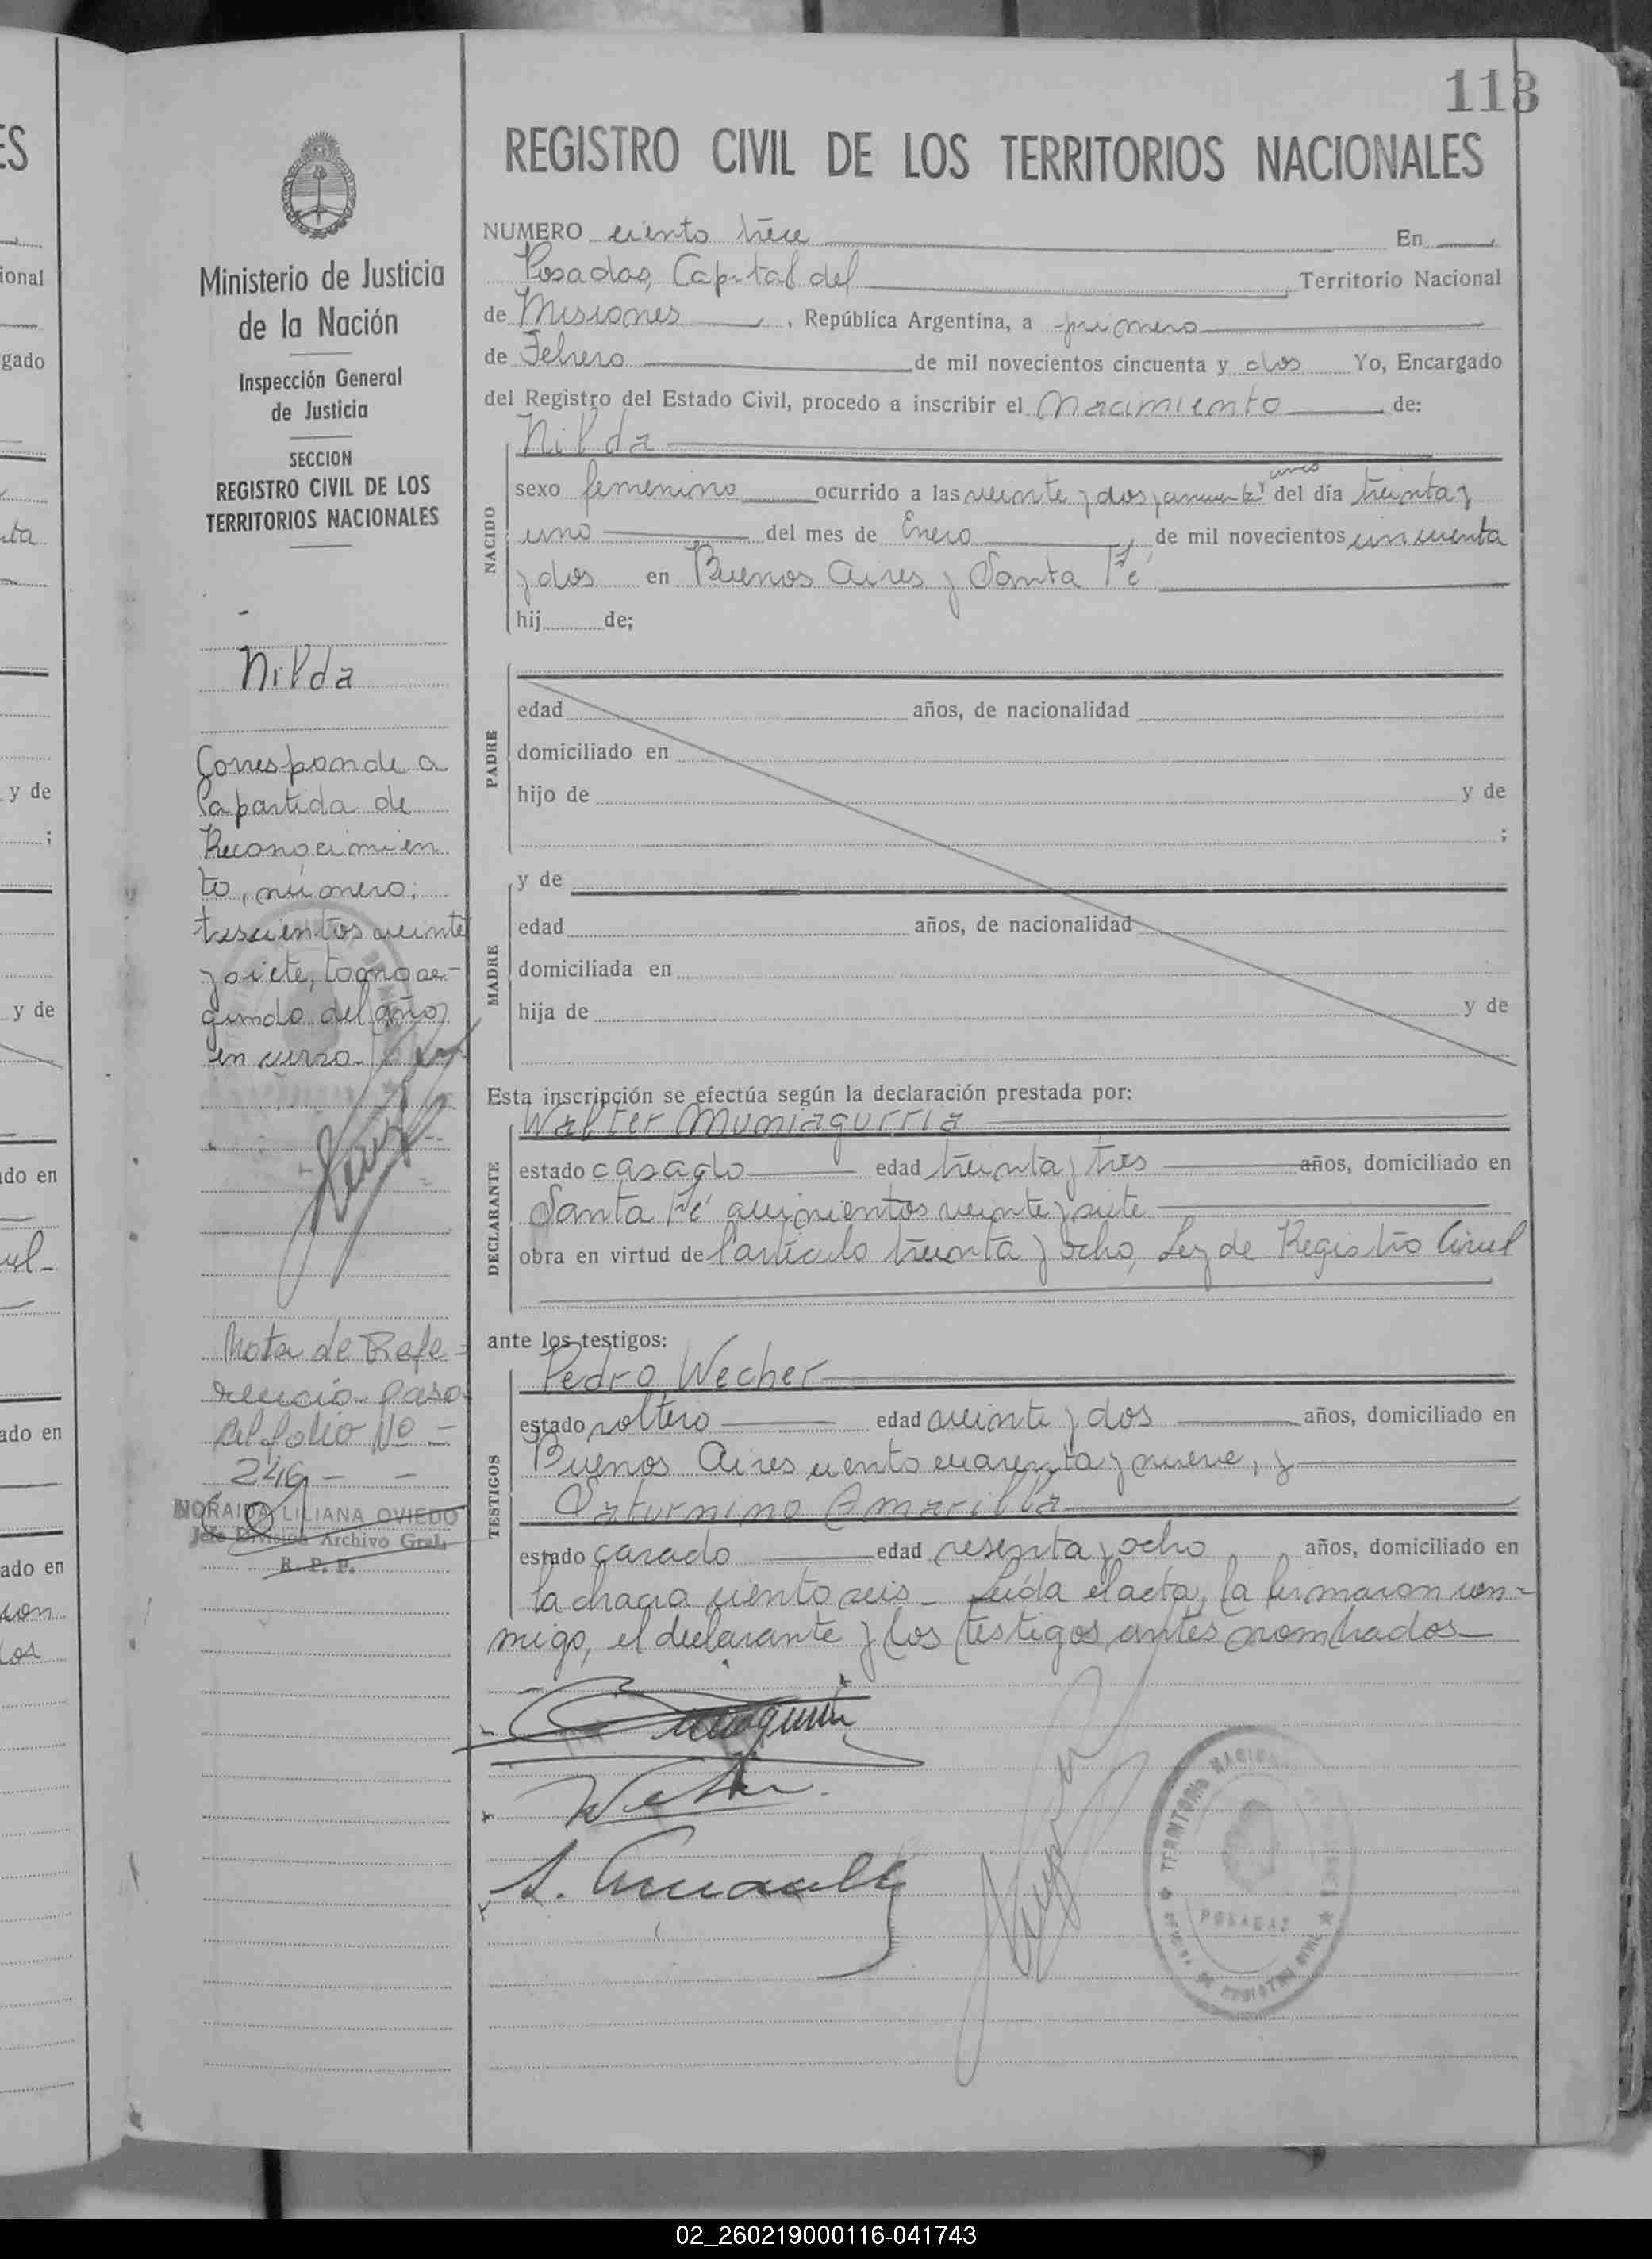 113
REGISTRO CIVIL DE LOS TERRITORIOS NACIONALES
Ministerio de Justicia
de la Nación
Inspección General
de Justicia
SECCION
REGISTRO CIVIL DE LOS
TERRITORIOS NACIONALES
Nilda
Corresponde a
la partida de
Reconocimien
to, número:
trescientos veinte
y siete, tomo se-
gundo del año
en curso
Nota de Refe-
rencia pasa
al folio Nº -
246 - -
NORAIDA LILIANA OVIEDO
Jefe División Archivo Gral.
R. P. P.
NUMERO ciento trece En
Posadas, Capital del Territorio Nacional
de Misiones, República Argentina, a primero
de Febrero de mil novecientos cincuenta y dos Yo, Encargado
del Registro del Estado Civil, procedo a inscribir el Nacimiento de:
NACIDO
Nilda
sexo femenino ocurrido a las veinte y dos, cincuenta y cinco del día treinta y
uno del mes de Enero de mil novecientos cincuenta
y dos en Buenos Aires y Santa Fé
hij de;
PADRE
edad años, de nacionalidad
domiciliado en
hijo de y de
;
MADRE
y de
edad años, de nacionalidad
domiciliada en
hija de y de
Esta inscripción se efectúa según la declaración prestada por:
DECLARANTE
Walter Muniagurria
estado casado edad treinta y tres años, domiciliado en
Santa Fé quinientos veinte y siete
obra en virtud de l'artículo treinta y ocho, Ley de Registro Civil
ante los testigos:
TESTIGOS
Pedro Wecher
estado soltero edad veinte y dos años, domiciliado en
Buenos Aires ciento cuarenta y nueve, y
Saturnino Amarilla
estado casado edad sesenta y ocho años, domiciliado en
la chacra ciento seis - Leída el acta, la firmaron con-
migo, el declarante y los testigos antes nombrados
TERRITORIO NACIONAL
POSADAS
REGISTRO CIVIL
ES
ional
gado
y de
;
y de
do en
ado en
ado en
02_260219000116-041743